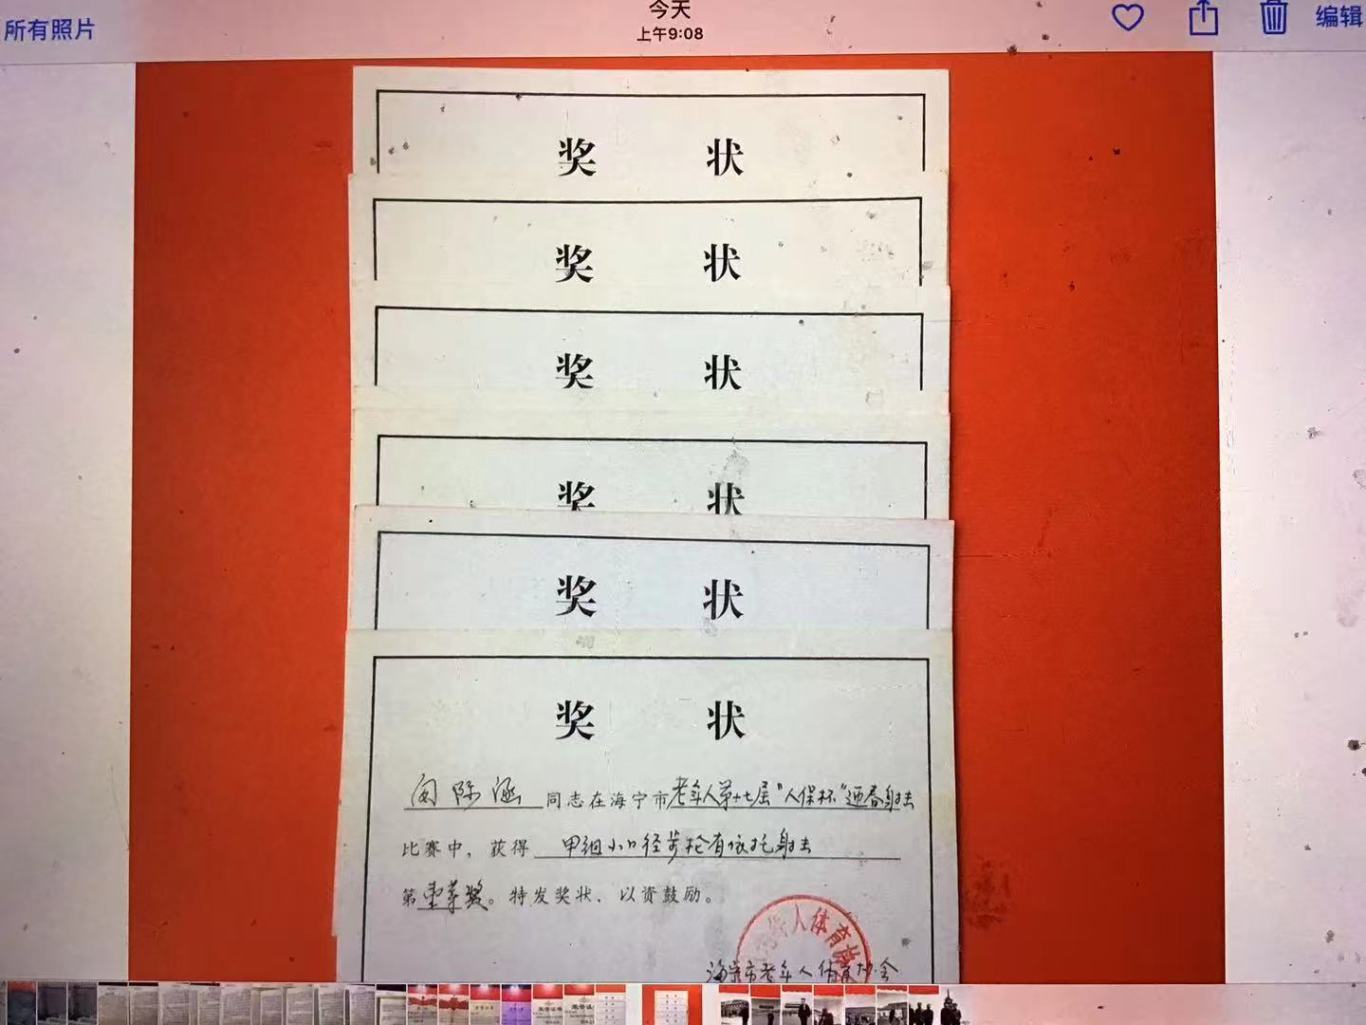 今天
所有照片
上午9:08
编辑
奖 状
奖 状
奖 状
奖 状
奖 状
奖 状
闵际涵同志在海宁市老年人第十七届“人保杯”迎春射击
比赛中，获得 甲组小口径步枪有依托射击
第壹等奖。特发奖状、以资鼓励。
人体育协
海宁市老年人体育协会